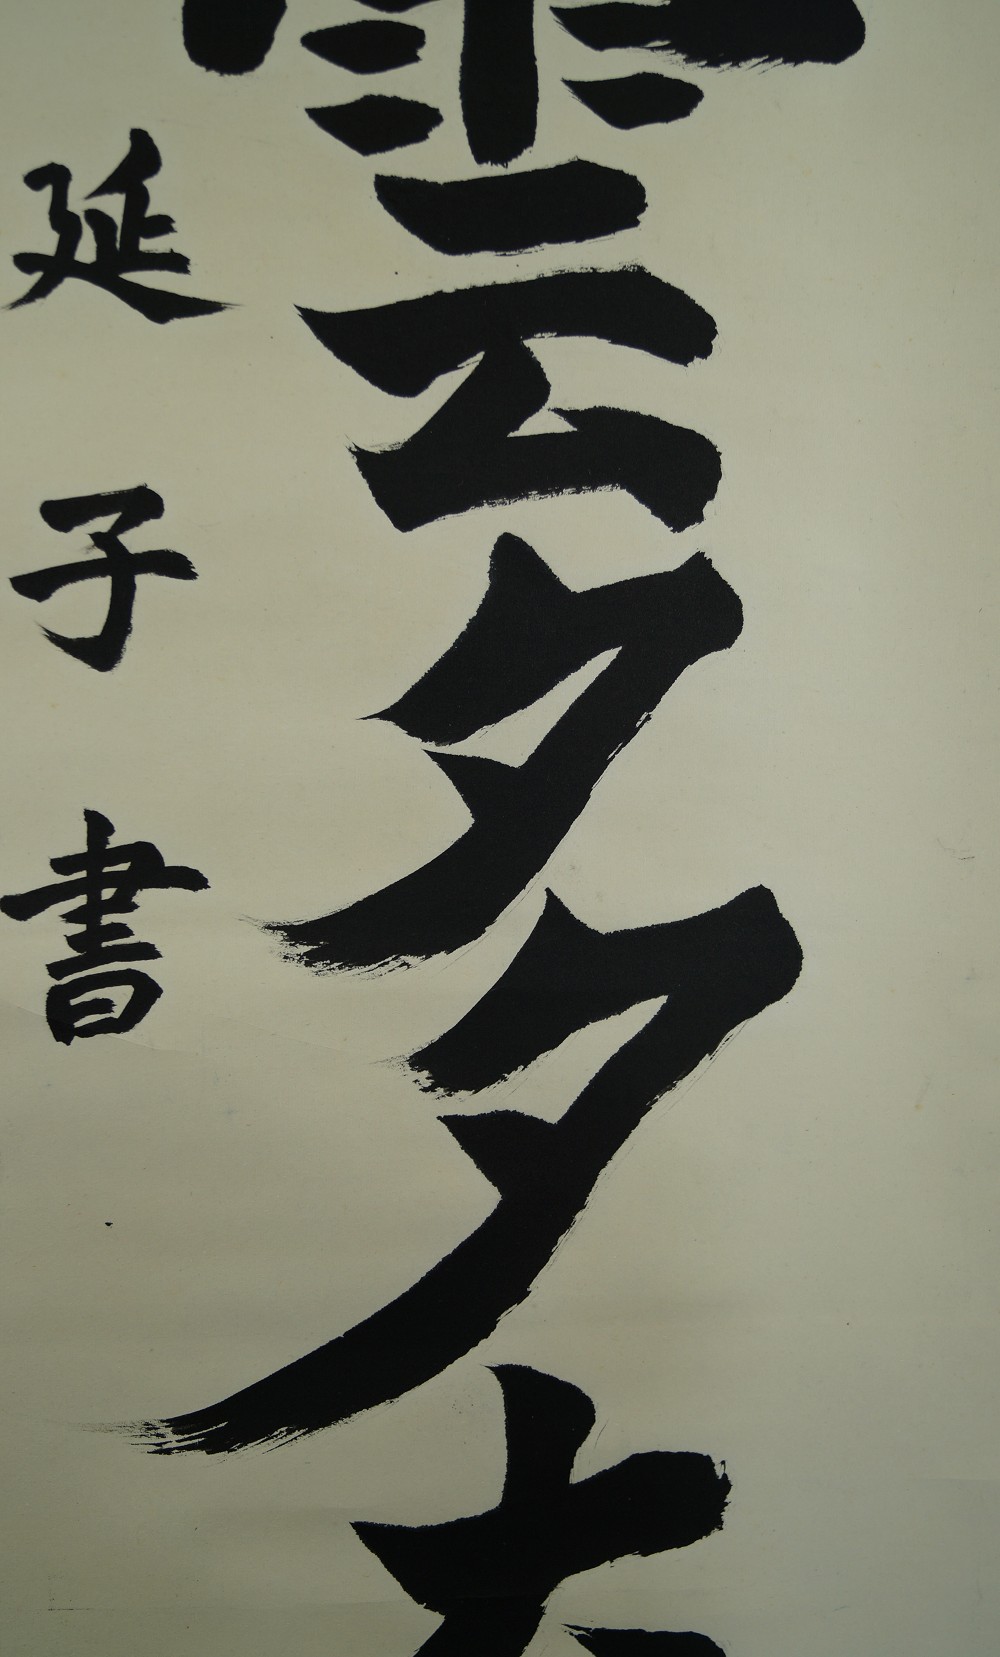 雲多去
延子書